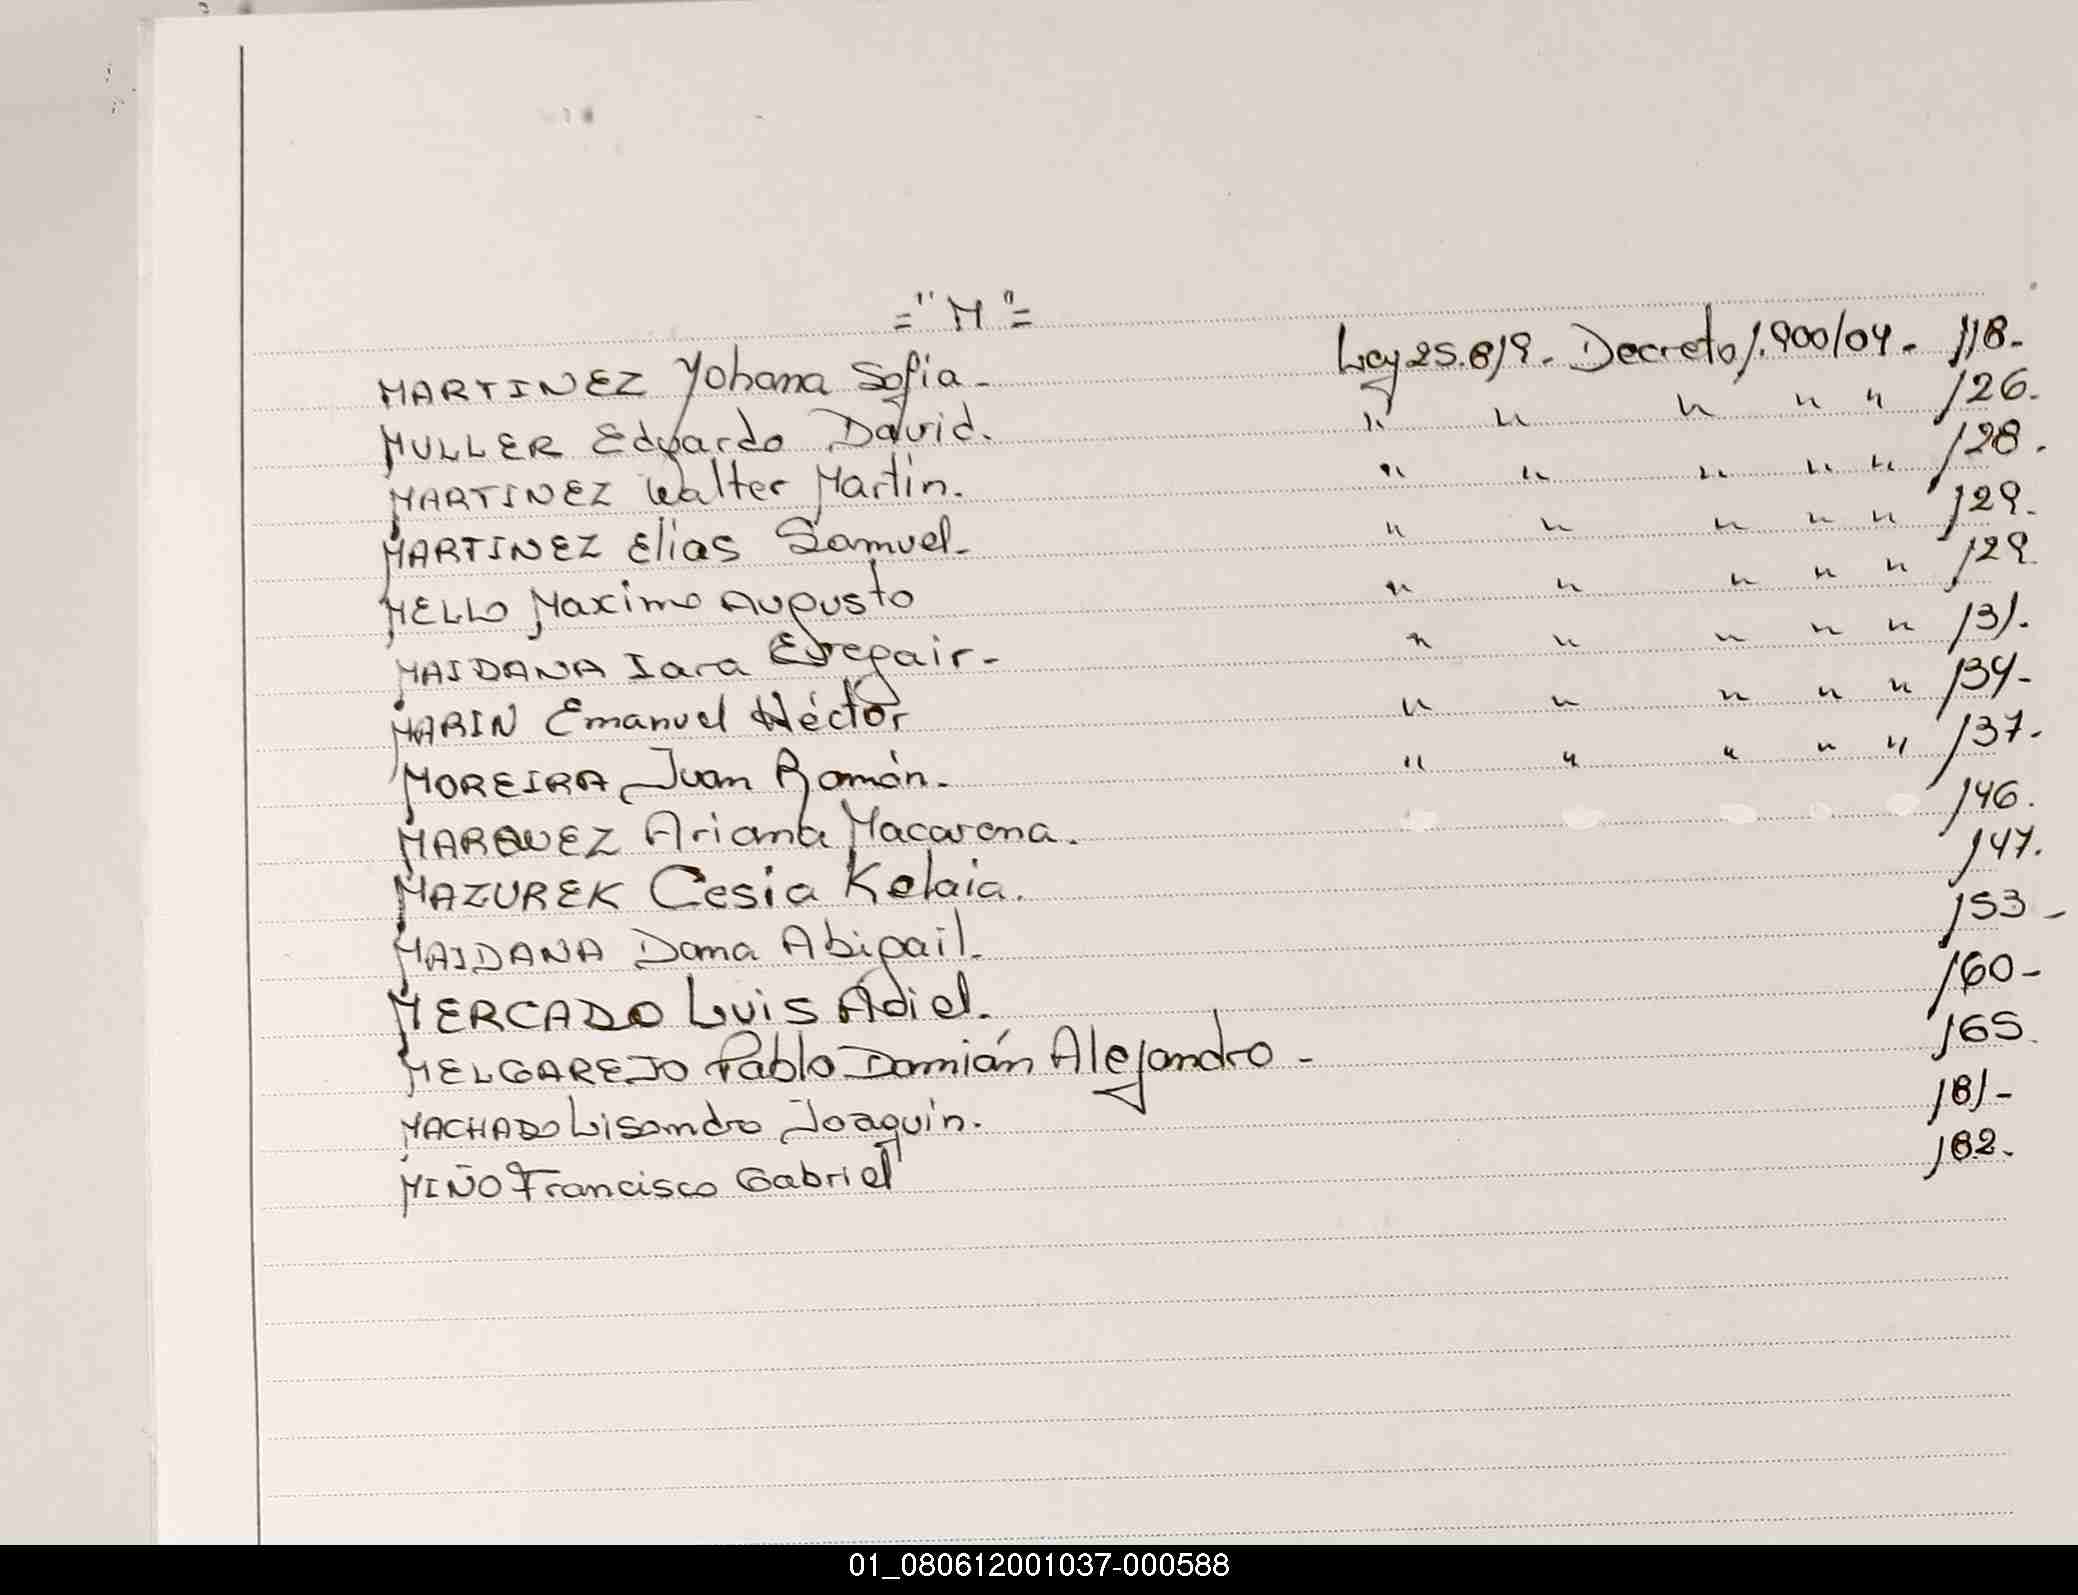 = "M" =
MARTINEZ Yohana Sofia - Ley 25.819. Decreto 1.900/04. 118.
MULLER Eduardo David. " " " " " 126.
MARTINEZ Walter Martin. " " " " " 128.
MARTINEZ Elias Samuel - " " " " " 129.
MELLO Maximo Augusto " " " " " 129.
MAIDANA Iara - " " " " " 131.
MARIN Emanuel Héctor " " " " " 134-
MOREIRA Juan Ramón. " " " " " 137.
MARQUEZ Ariana Macarena. 146.
MAZUREK Cesia Kelaia. 147.
MAIDANA Dana Abigail. 153-
MERCADO Luis Adiel. 160-
MELGAREJO Pablo Damián Alejandro - 165.
MACHADO Lisandro Joaquín. 181-
MIÑO Francisco Gabriel 182.
01_080612001037-000588